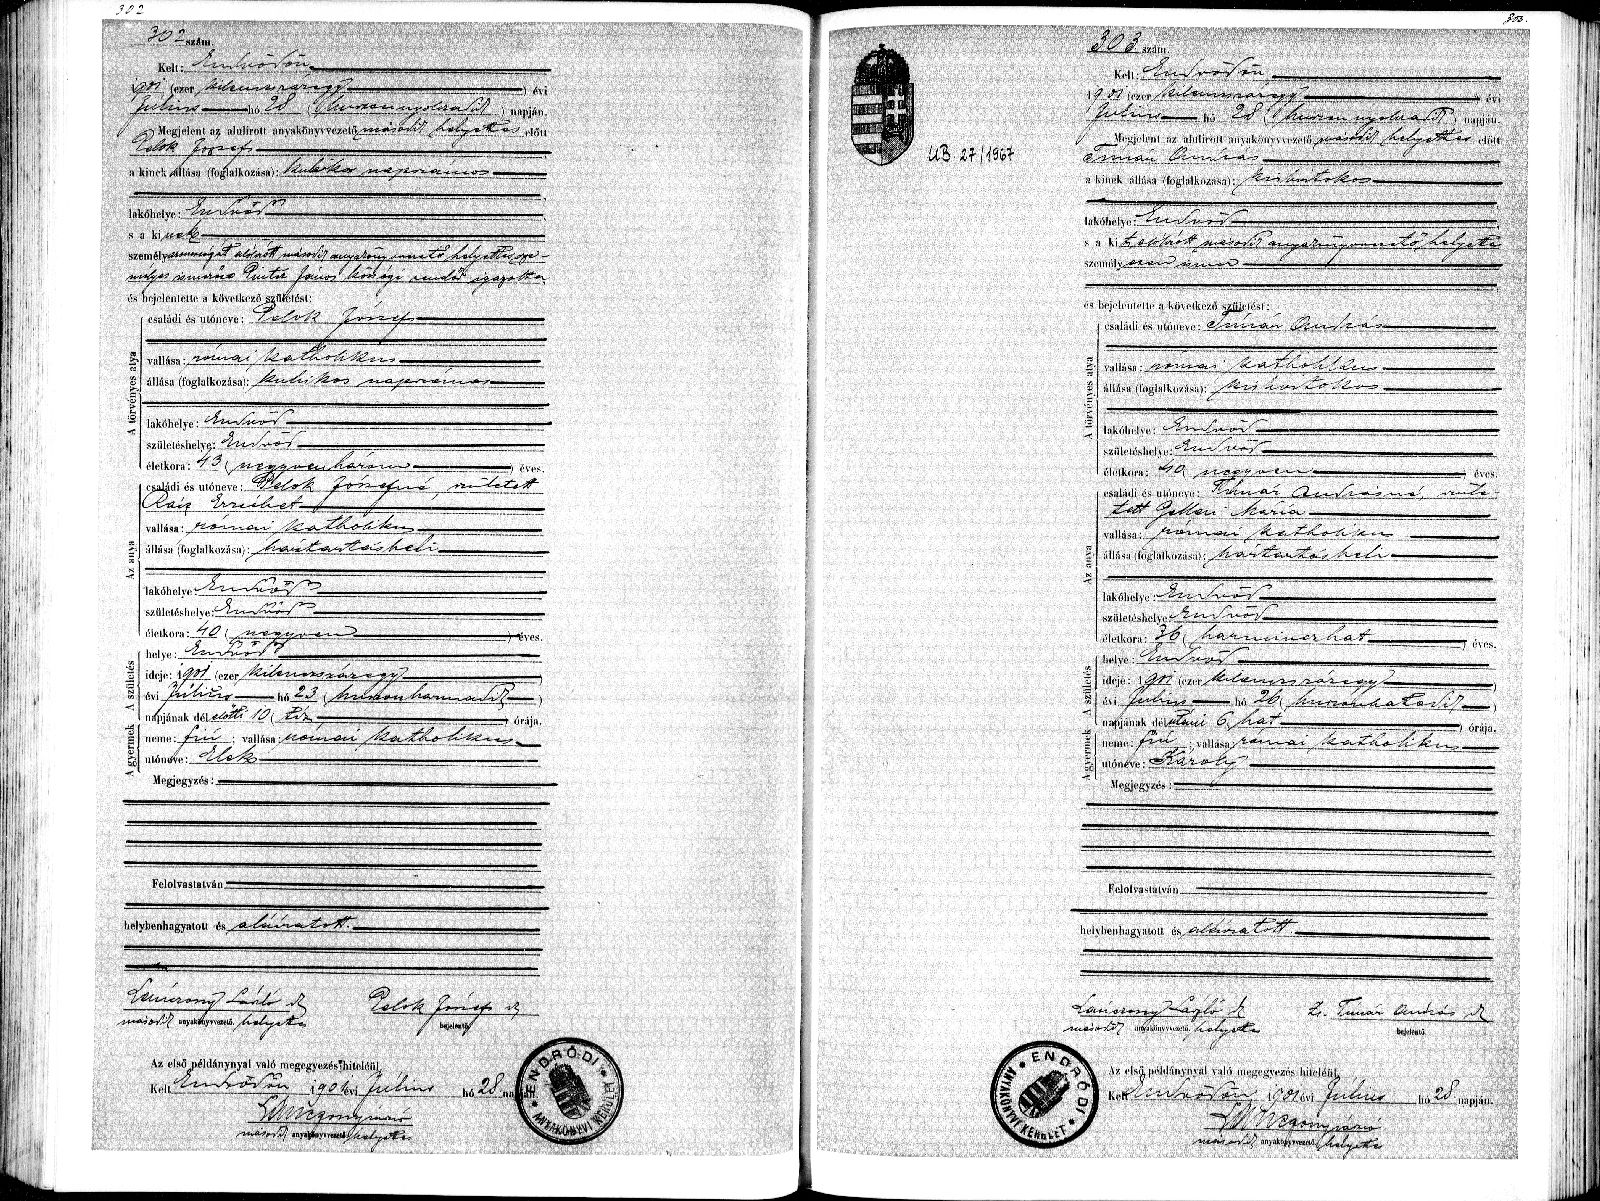 302
302 szám.
Kelt: Endrődön
1901 (ezer kilencszázegy) évi
Julius hó 28 (huszonnyolczadik) napján.
Megjelent az alulírott anyakönyvvezető második helyettes előtt
Pelok József
a kinek állása (foglalkozása): kubikos napszámos
lakóhelye: Endrőd
s a kinek
személyazonosságát alólírott második anyakönyvvezető helyettes sze-
mélyes ismerőse János községi rendőr igazolta
és bejelentette a következő születést:
A törvényes atya
családi és utóneve: Pelok József
vallása: római katholikus
állása (foglalkozása): kubikos napszámos
lakóhelye: Endrőd
születéshelye: Endrőd
életkora: 43 (negyvenhárom) éves.
Az anya
családi és utóneve: Pelok Józsefné, született
Rácz Erzsébet
vallása: római katholikus
állása (foglalkozása): háztartásbeli
lakóhelye: Endrőd
születéshelye: Endrőd
életkora: 40 (negyven) éves.
A születés
helye: Endrőd
ideje: 1901 (ezer kilencszázegy)
évi Július hó 23 (huszonharmadik)
napjának dél előtti 10 (tíz) órája.
A gyermek
neme: fiú; vallása: római katholikus
utóneve: Elek
Megjegyzés:
Felolvastatván
helybenhagyatott és aláíratott.
László
második anyakönyvvezető helyettes
Pelok József
bejelentő.
Az első példánynyal való megegyezés hiteléül.
Kelt Endrődön, 1901 évi Július hó 28. napján.
második anyakönyvvezető helyettes
ENDRŐDI
ANYAKÖNYVI KERÜLET
303.
303 szám.
UB 27/1967
Kelt: Endrődön
1901 (ezer kilencszázegy) évi
Július hó 28 (huszonnyolczadik) napján.
Megjelent az alulírott anyakönyvvezető második helyettes előtt
Timár András
a kinek állása (foglalkozása): kisbirtokos
lakóhelye: Endrőd
s a kit alólírott második anyakönyvvezető helyettes
személyesen ismer
és bejelentette a következő születést:
A törvényes atya
családi és utóneve: Timár András
vallása: római katholikus
állása (foglalkozása): kisbirtokos
lakóhelye: Endrőd
születéshelye: Endrőd
életkora: 40 (negyven) éves.
Az anya
családi és utóneve: Timár Andrásné, szüle-
tett Gellai Mária
vallása: római katholikus
állása (foglalkozása): háztartásbeli
lakóhelye: Endrőd
születéshelye: Endrőd
életkora: 36 (harminczhat) éves.
A születés
helye: Endrőd
ideje: 1901 (ezer kilencszázegy)
évi Július hó 26 (huszonhatodik)
napjának dél utáni 6 (hat) órája.
A gyermek
neme: fiú; vallása: római katholikus
utóneve: Károly
Megjegyzés:
Felolvastatván
helybenhagyatott és aláíratott.
László
második anyakönyvvezető helyettes
Timár András
bejelentő.
Az első példánynyal való megegyezés hiteléül.
Kelt Endrődön, 1901 évi Július hó 28. napján.
második anyakönyvvezető helyettes
ENDRŐDI
ANYAKÖNYVI KERÜLET